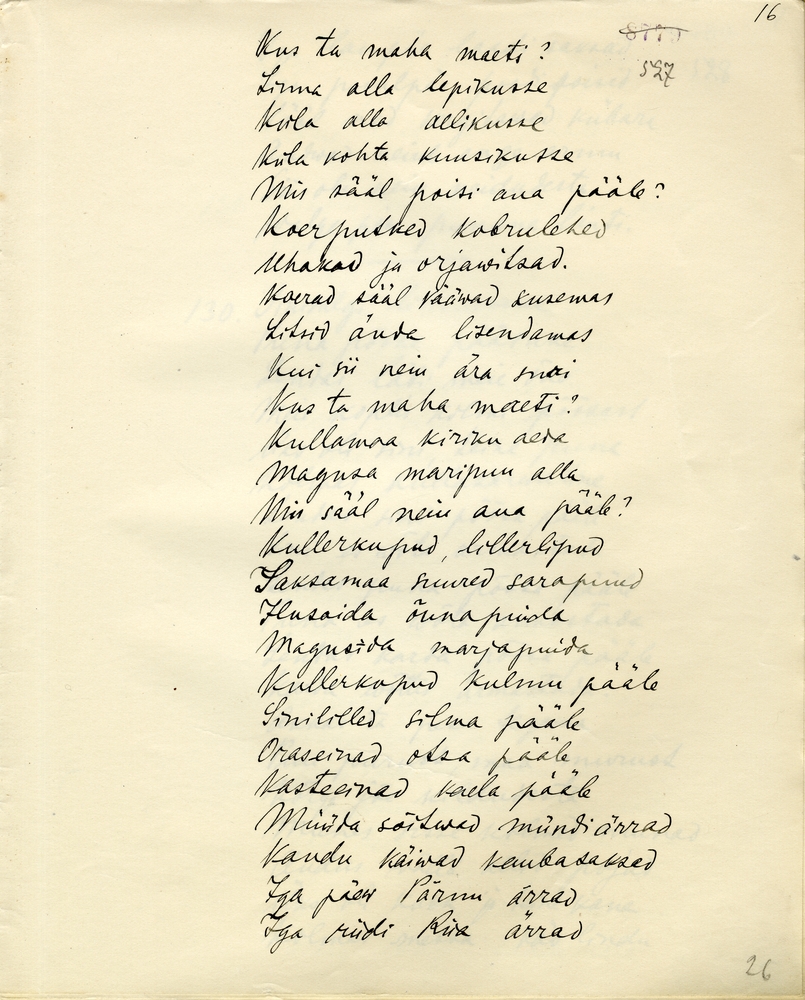 16
527
Kus ta maha maeti?
Linna alla lepikusse
Küla alla allikusse
Küla kohta kuusikusse
Mis sääl poisi aua pääle?
Koerputked kobrulehed
Uhakad ja orjawitsad.
Koerad sääl kääwad kusemas
Litsid ända lisendamas
Kui sii nein ära suri
Kus ta maha maeti?
Kullamaa kiriku aeda
Magusa maripuu alla
Mis sääl nein aua pääle?
Kullerkupud, lillerlipud
Saksamaa suured sarapuud
Ilusaida õunapuida
Magusida marjapuida
Kullerkupud kulmu pääle
Sinililled silma pääle
Oraseinad otsa pääle
Kasteeinad kaela pääle
Müüda sõitwad mündiärrad
Kaudu käiwad kaubasaksad
Iga päew Pärnu ärrad
Iga riidi Riia ärrad
26